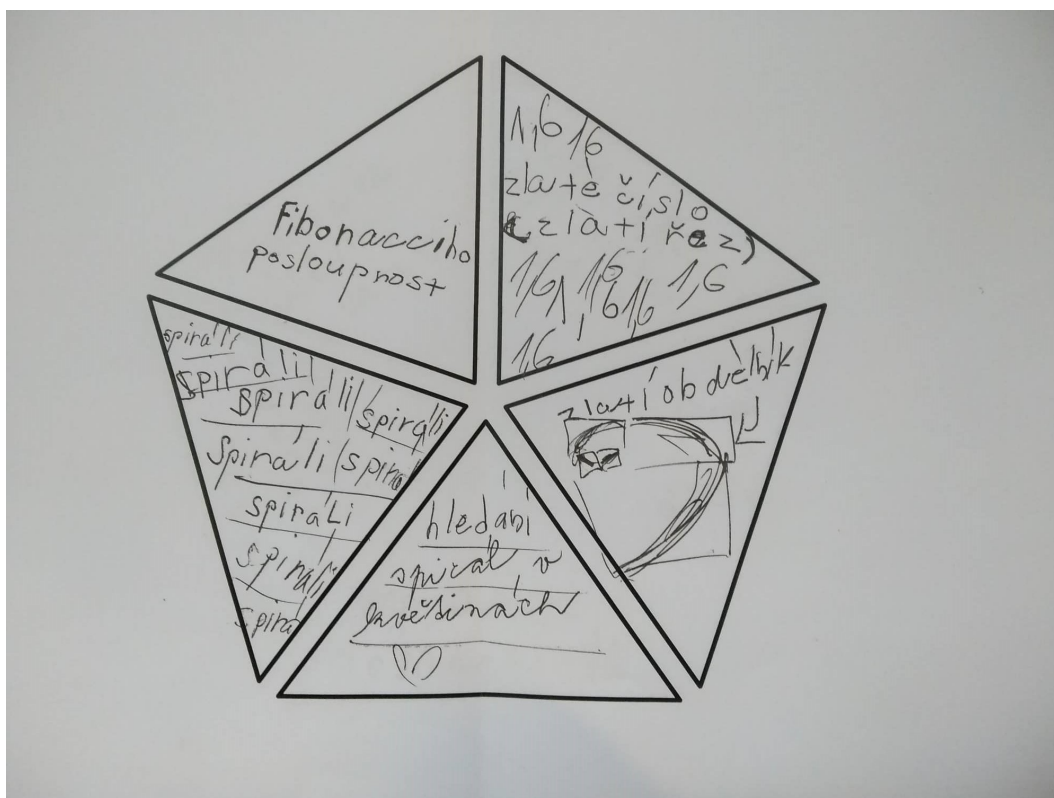 Fibonacciho
posloupnost
1,6 16
zlaté číslo
(zlatí řez)
1,61 1,6 1,6
1,6 1,6
zlatí obdélník
hledání
spirál v
květinách
spirálí
spirálí
spirálí (spirálí
Spirálí (spirá
spirálí
spirálí
spirá